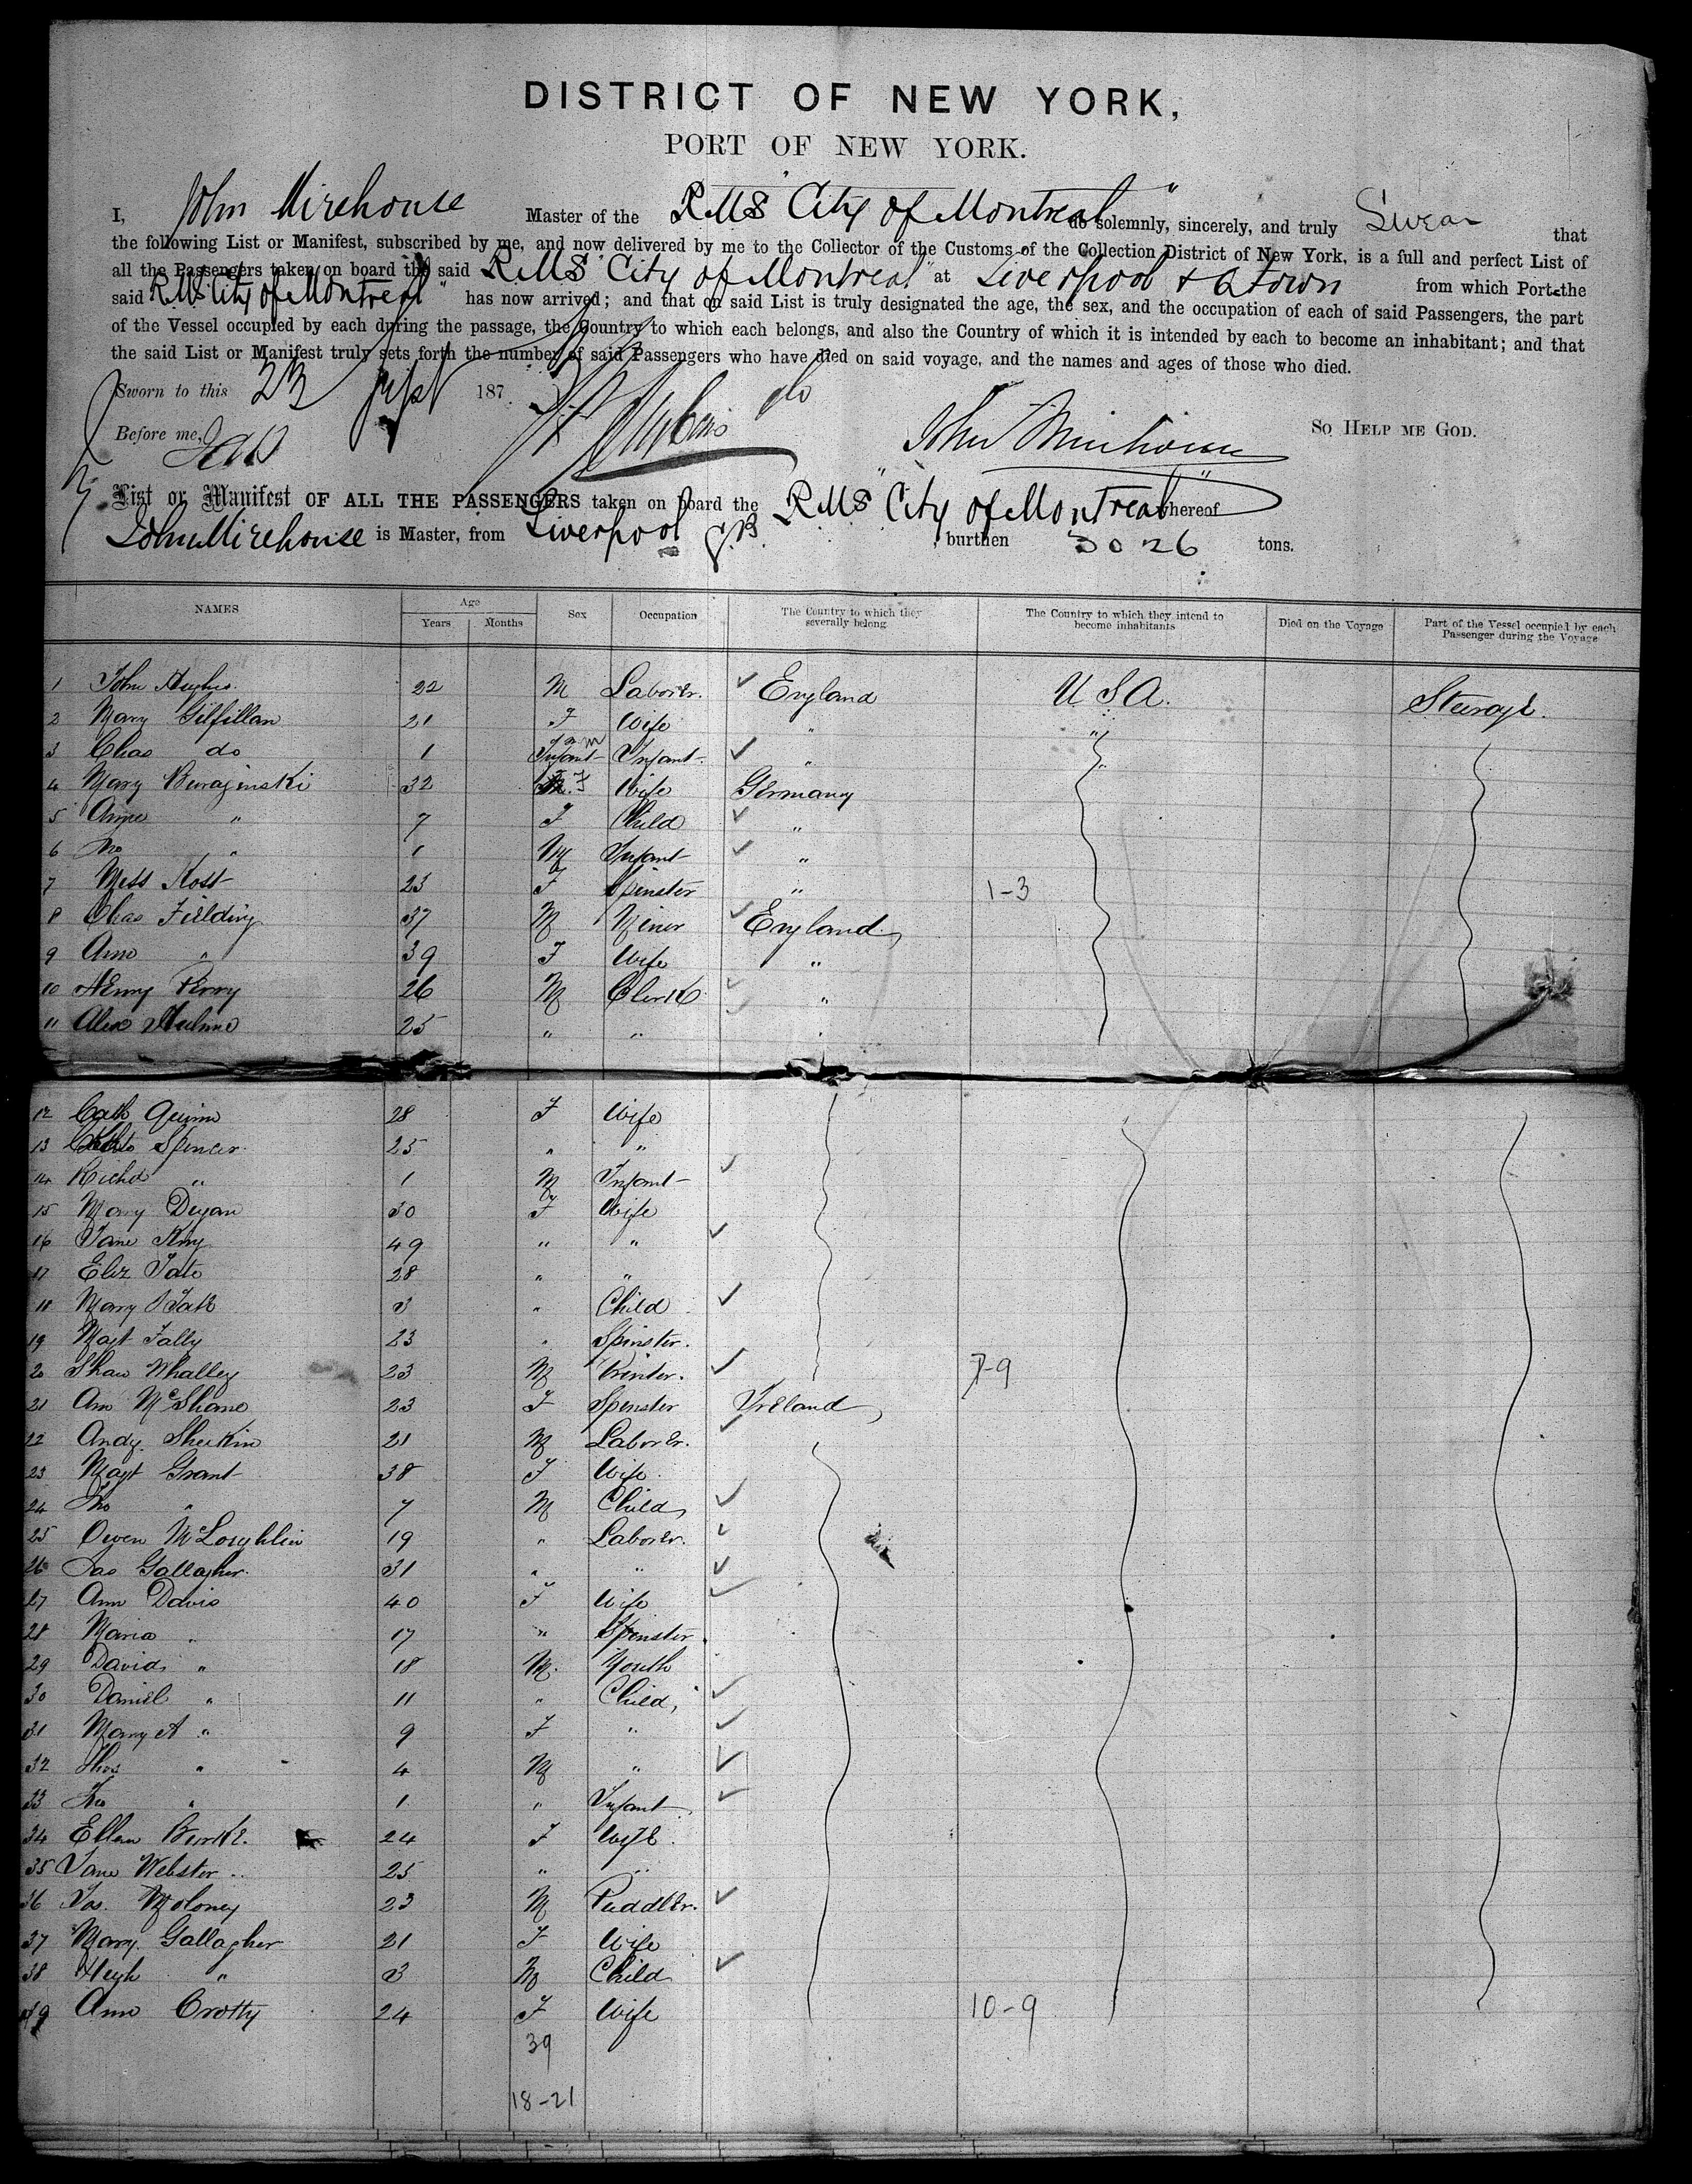 DISTRICT OF NEW YORK,
PORT OF NEW YORK.
I, John Mirehouse Master of the RMS "City of Montreal" do solemnly, sincerely, and truly Swear that
the following List or Manifest, subscribed by me, and now delivered by me to the Collector of the Customs of the Collection District of New York, is a full and perfect List of
all the Passengers taken on board the said RMS "City of Montreal" at Liverpool + Qtown from which Port the
said RMS "City of Montreal" has now arrived; and that on said List is truly designated the age, the sex, and the occupation of each of said Passengers, the part
of the Vessel occupied by each during the passage, the Country to which each belongs, and also the Country of which it is intended by each to become an inhabitant; and that
the said List or Manifest truly sets forth the number of said Passengers who have died on said voyage, and the names and ages of those who died.
Sworn to this 23 Sept 187
Before me, SO HELP ME GOD.
John Mirehouse
List or Manifest OF ALL THE PASSENGERS taken on board the RMS "City of Montreal" whereof
John Mirehouse is Master, from Liverpool G.B. burthen 3026 tons.
NAMES Age Years Months Sex Occupation The Country to which they severally belong The Country to which they intend to become inhabitants Died on the Voyage Part of the Vessel occupied by each Passenger during the Voyage
1 John Hughes 22 M Laborer. England U S A. Steerage.
2 Mary Gilfillan 21 F Wife " "
3 Chas do 1 Infant m Infant "
4 Mary Buraginski 32 F Wife Germany
5 " 7 F Child "
6 Jno " 1 M Infant "
7 Kost 23 F Spinster " 1-3
8 Chas Fielding 37 M Miner England
9 Ann " 39 F Wife "
10 Henry Perry 26 M Clerk "
11 Alex Hulme 25 " " "
12 Cath Quinn 28 F Wife
13 Spencer 25 " "
14 Richd " 1 M Infant
15 Mary Dugan 30 F Wife
16 Jane 49 " "
17 Eliz Tate 28 " "
18 Mary Tate 3 " Child
19 Magt Fally 23 " Spinster.
20 Shaw Whalley 23 M Printer. 7-9
21 Ann McShane 23 F Spinster Ireland
22 Andy Sheekin 21 M Laborer.
23 Magt Grant 38 F Wife
24 Jno " 7 M Child
25 Owen McLoughlin 19 " Laborer.
26 Jas Gallagher 31 " "
27 Ann Davis 40 F Wife
28 Maria " 17 " Spinster
29 David " 18 M. Youth
30 Daniel " 11 " Child
31 Mary A " 9 F "
32 Thos " 4 M "
33 Jno " 1 " Infant
34 Ellen Burke. 24 F Wife
35 Jane Webster 25 " "
36 Jas. Moloney 23 M Puddler.
37 Mary Gallagher 21 F Wife
38 Hugh " 3 M Child
39 Ann Crotty 24 F Wife 10-9
39
18-21